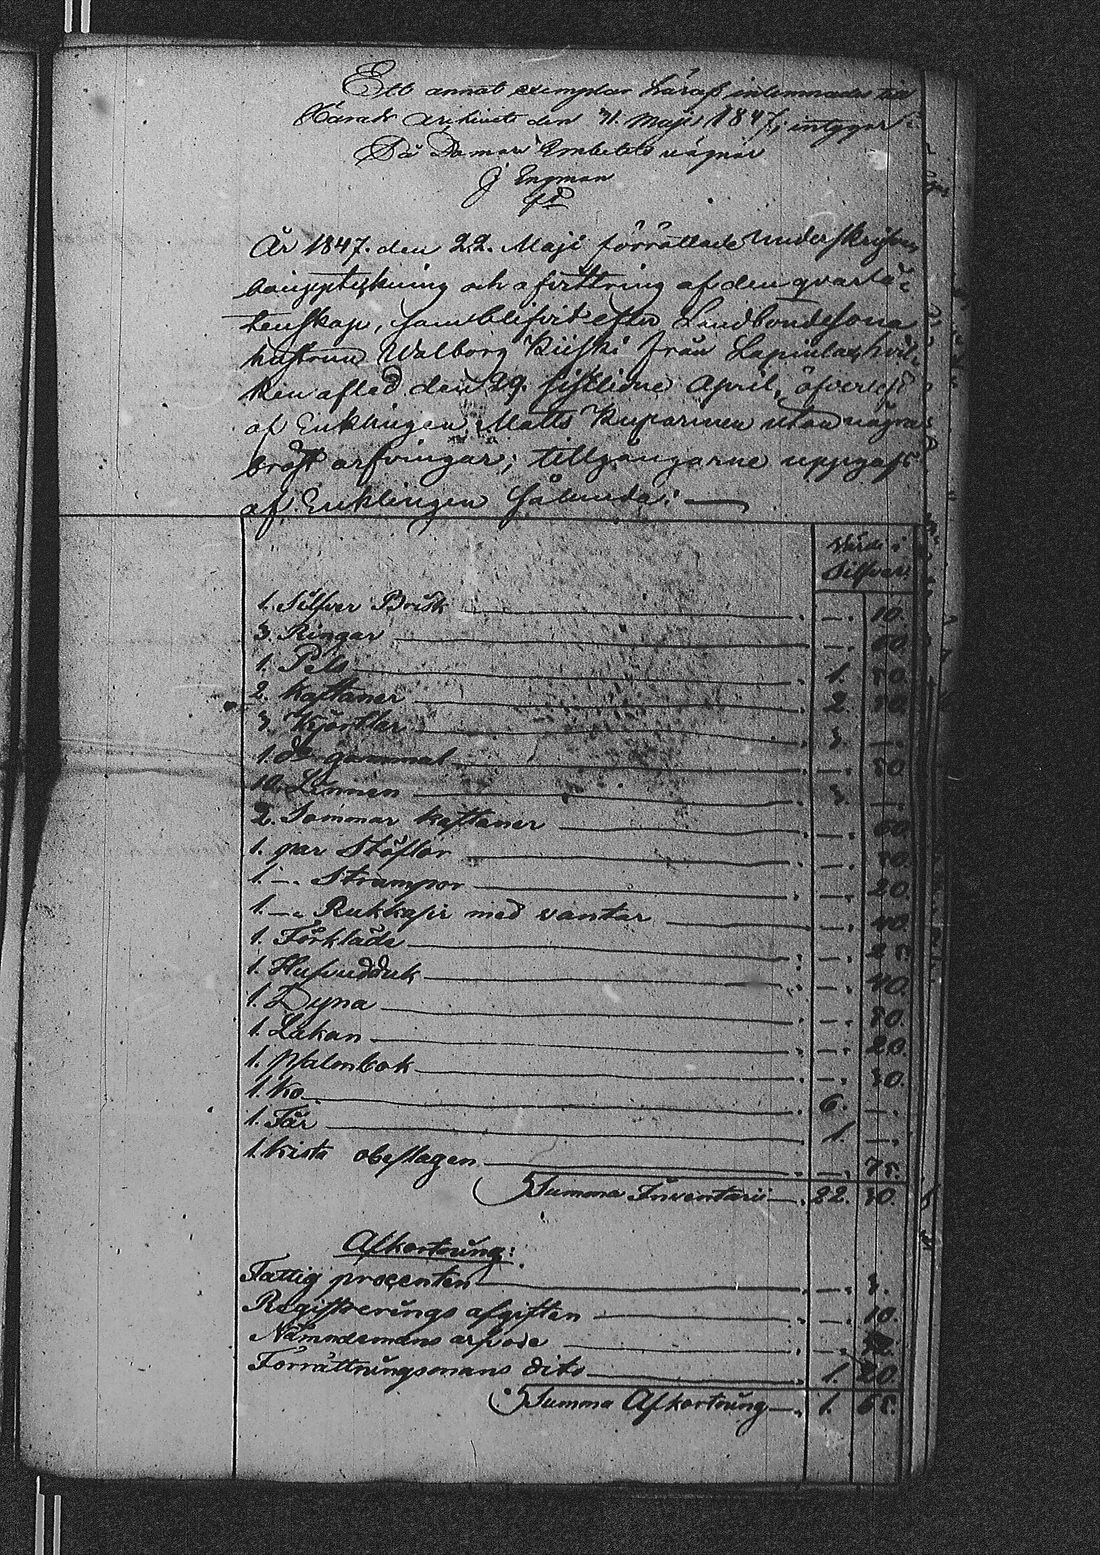 Ett annat exemplar häraf inlemnades till
Härads Archivet den 31. Maji 1847, intygar
På Domare Embetets vägnar
J Engman
År 1847. den 22. Maji förrättade Underskrifven
bouppteckning och afvittring af den qvarlå-
tenskap, som blifvit efter Landbondesona
hustrun Walborg Kiiski från Lapinlax, hvil-
ken afled den 29. sistledne April, öfverlefd
af Enklingen Matts Kuparinen utan några
bröst arfvingar; tillgångarne uppgafs
af Enklingen sålunda: —
Värde i
Silfver.
1. Silfver Brisk — . — . 10.
3. Ringar — . — . 60.
1. Pels — . 1. 50.
2. Kaftaner — . 2. 50.
3. Kjortlar — . 3. — .
1. do gammal — . — . 50.
10. Linnen — . 3. — .
2. Sommar kaftaner — . — . 60.
1. par Stöflor — . — . 50.
1. — . Strumpor — . — . 20.
1. — . Rukkasir med vantar — . — . 40.
1. Förkläde — . — . 25.
1. Hufvudduk — . — . 40.
1. Dyna — . — . 50.
1. Lakan — . — . 20.
1. Psalmbok — . — . 30.
1. Ko — . 6. — .
1. Får — . 1. — .
1. Kista obeslagen — . — . 75.
Summa Inventarii — . 22. 30.
Afkortning:
Fattig procenten — . — . 3.
Registrerings afgiften — . — . 10.
Nämndemans arfvode — . — . 32.
Förrättningsmans dito — . 1. 20.
Summa Afkortning — . 1. 65.